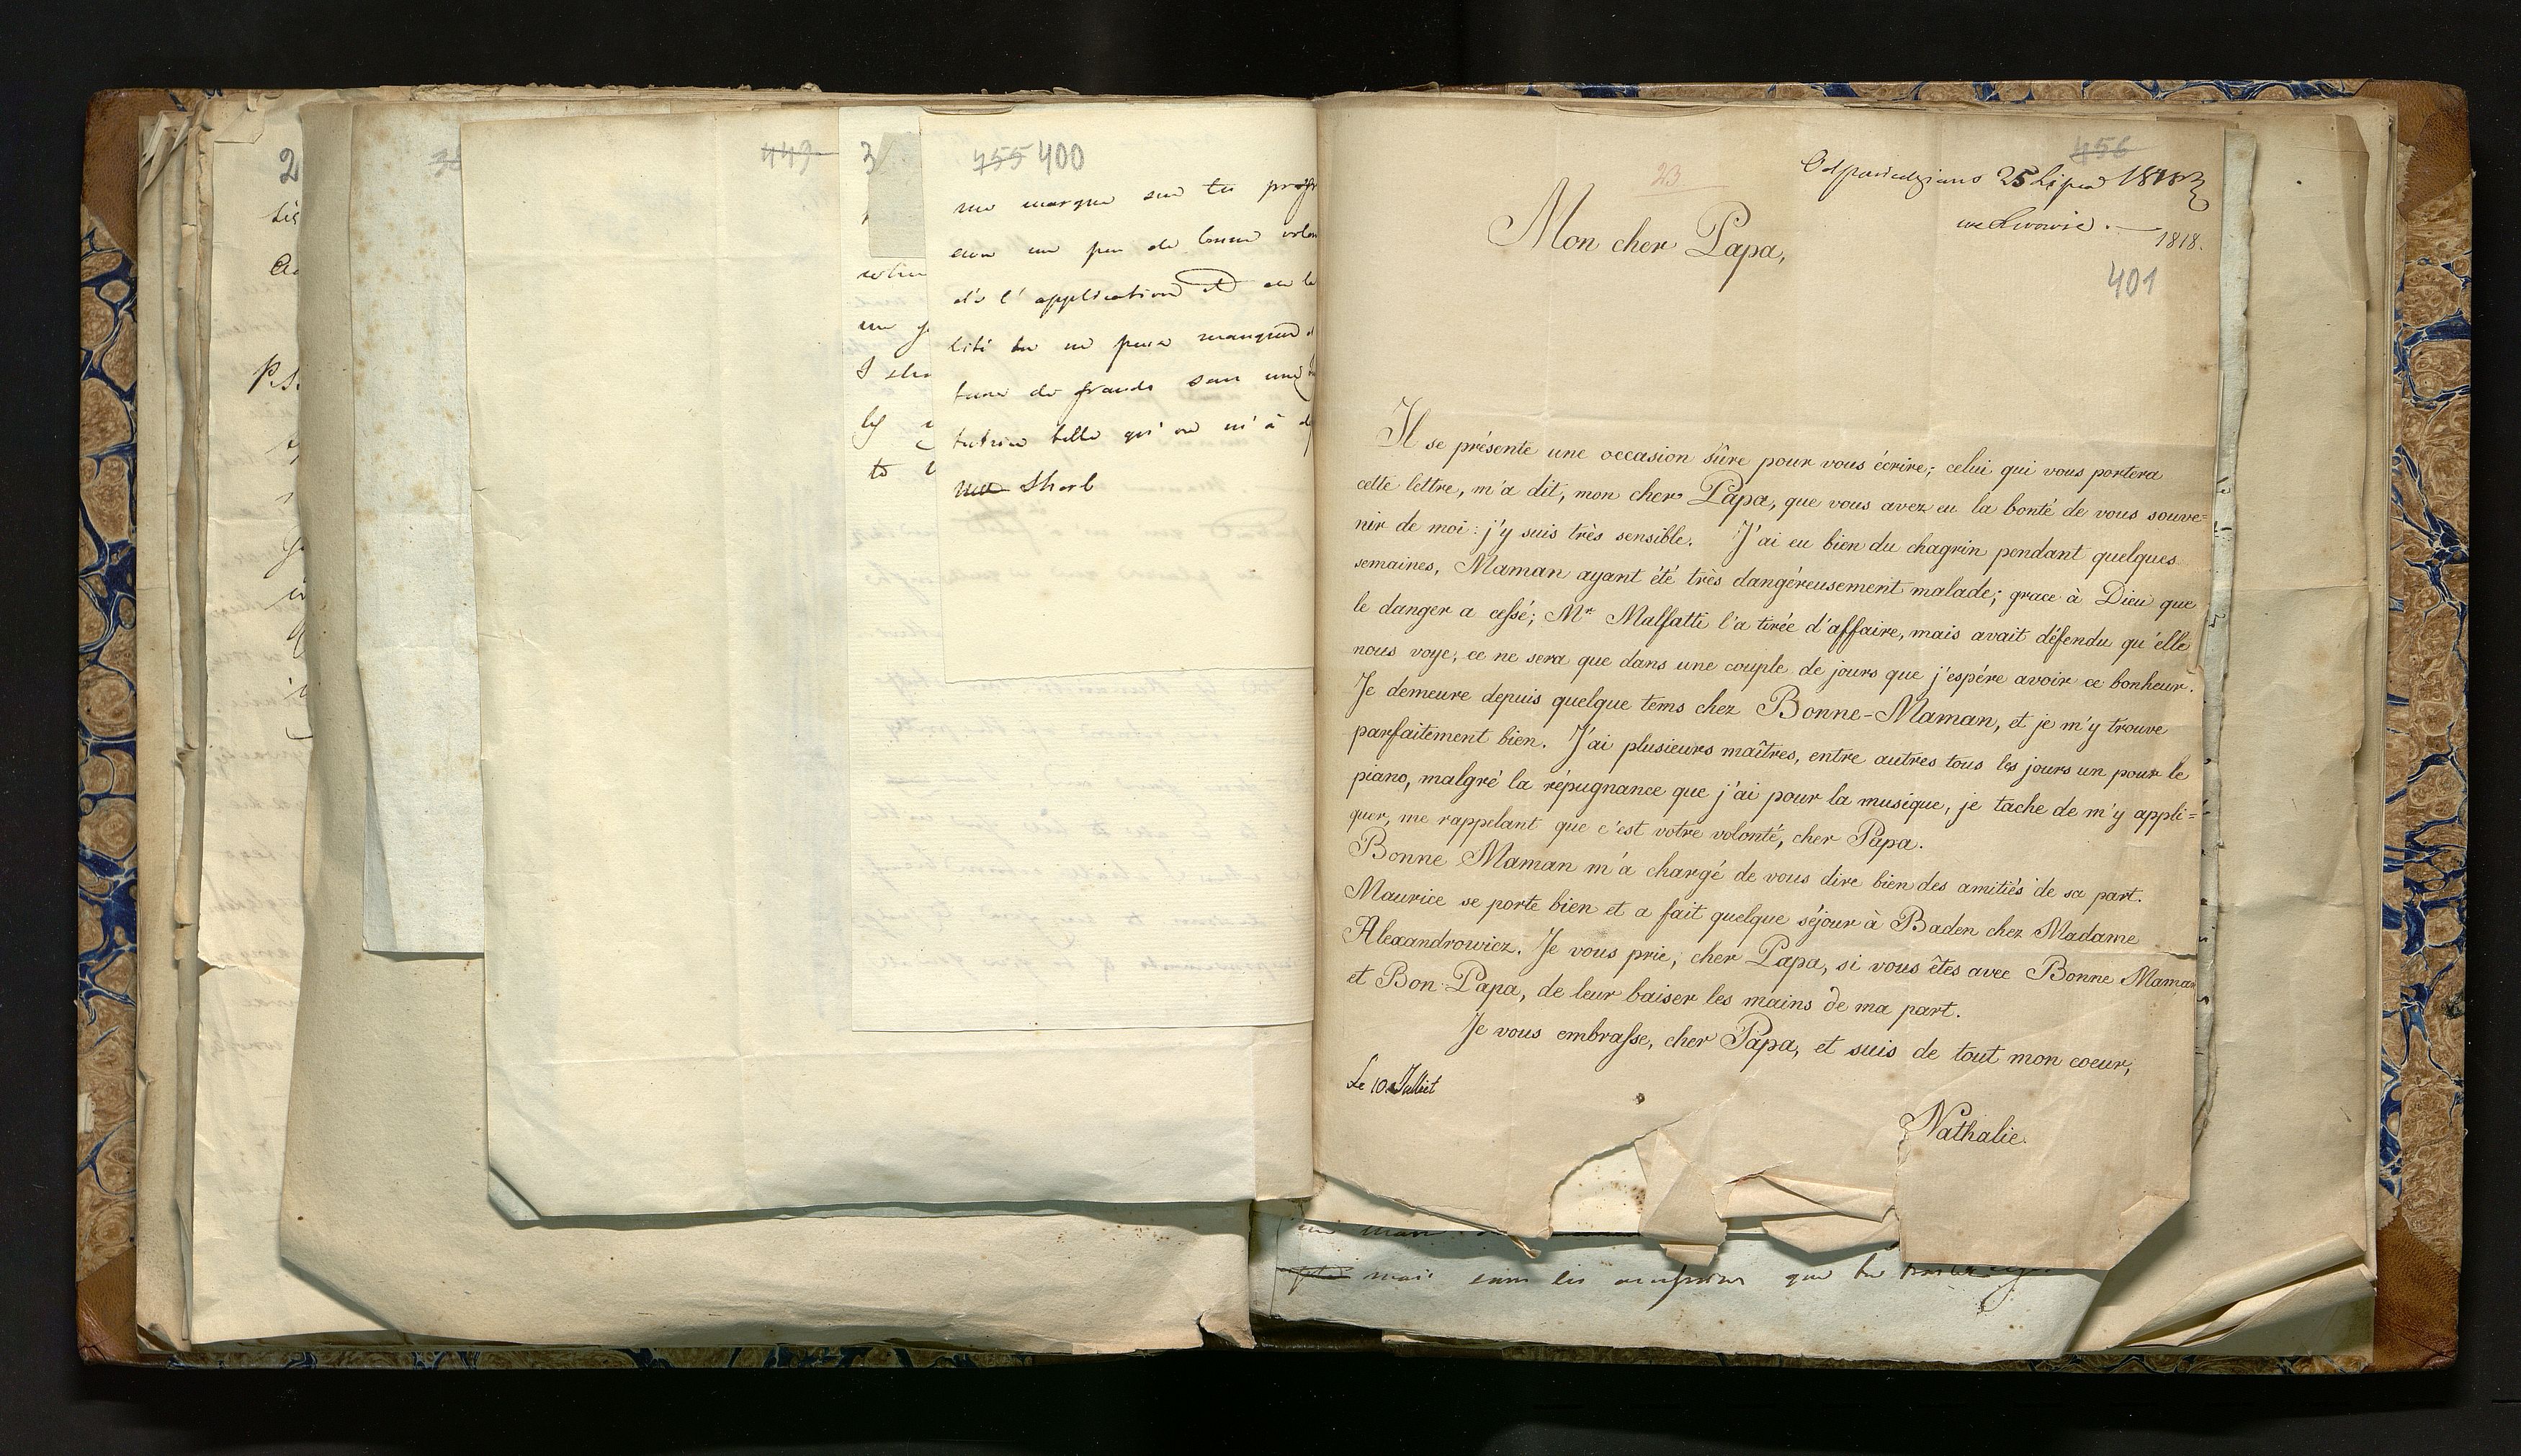 2
449
3
455 400
me marque sur tes
avec un peu de bonne
de l'application et de la
lité tu ne peux manquer
de grands sans une
telle qu'on m'a
Sharl
to
P.S.
456
23
25 Lipca 1818
we Lwowie. — 1818.
401
Mon cher Papa,
Il se présente une occasion sûre pour vous écrire; celui qui vous portera
cette lettre, m'a dit, mon cher Papa, que vous avez eu la bonté de vous souve=
nir de moi: j'y suis très sensible. J'ai eu bien du chagrin pendant quelques
semaines, Maman ayant été très dangéreusement malade; grace à Dieu que
le danger a cessé; Mr Malfatti l'a tirée d'affaire, mais avait défendu qu'elle
nous voye; ce ne sera que dans une couple de jours que j'espére avoir ce bonheur.
Je demeure depuis quelque tems chez Bonne-Maman, et je m'y trouve
parfaitement bien. J'ai plusieurs maîtres, entre autres tous les jours un pour le
piano, malgré la répugnance que j'ai pour la musique, je tache de m'y appli=
quer, me rappelant que c'est votre volonté, cher Papa.
Bonne Maman m'a chargé de vous dire bien des amitiés de sa part.
Maurice se porte bien et a fait quelque séjour à Baden chez Madame
Alexandrowicz. Je vous prie, cher Papa, si vous êtes avec Bonne Maman
et Bon-Papa, de leur baiser les mains de ma part.
Je vous embrasse, cher Papa, et suis de tout mon coeur,
Le 10 Juillet
Nathalie.
mais sans les que tu